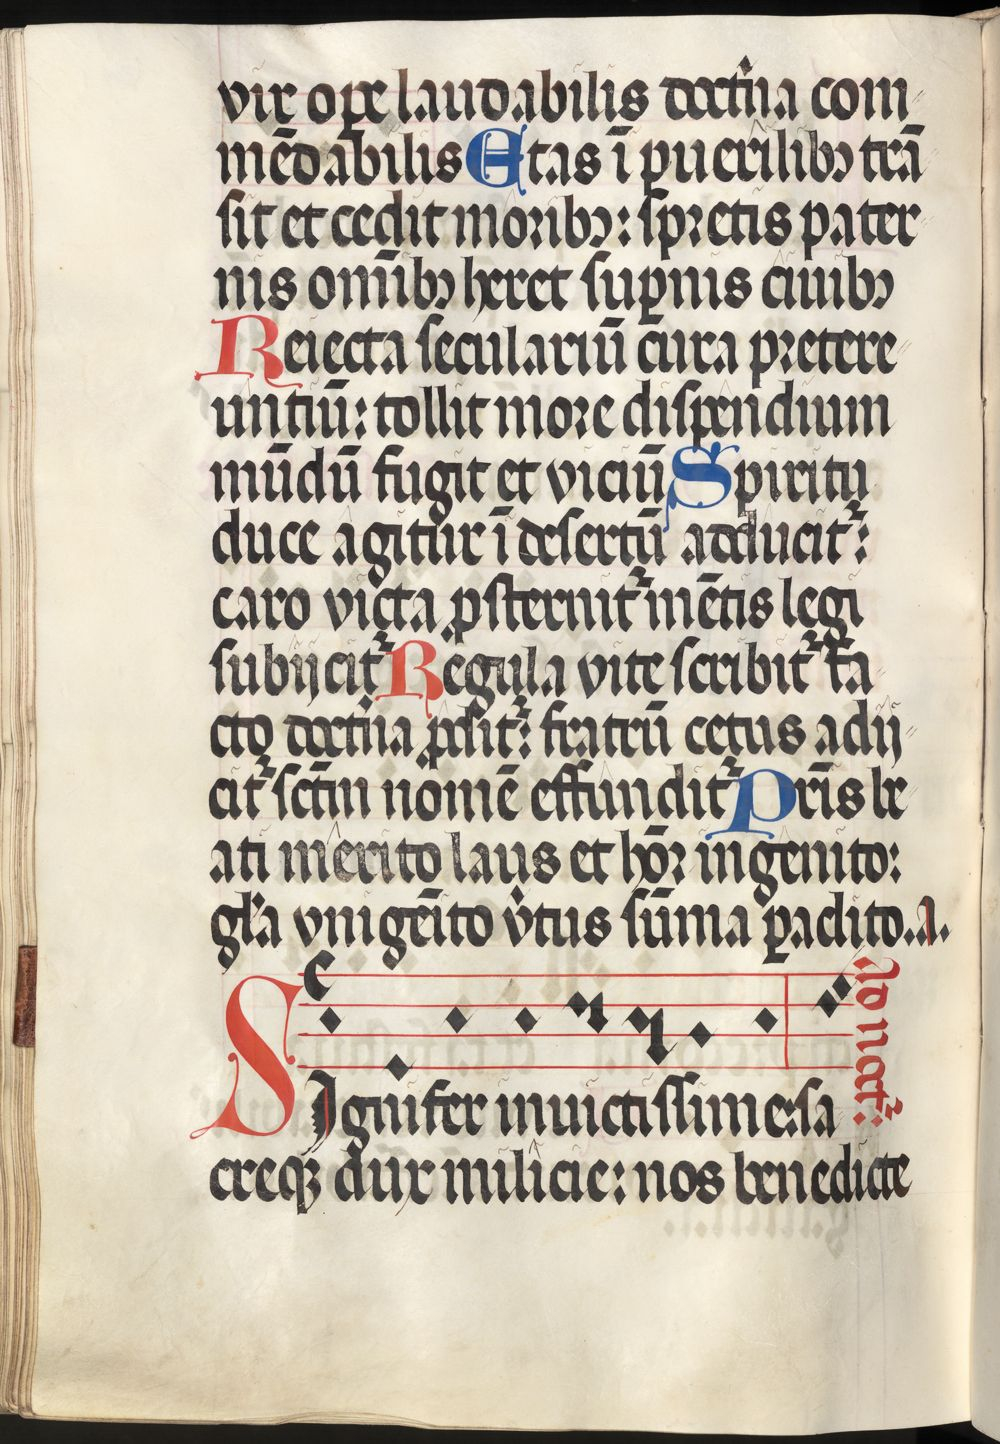 vir ope laudabilis doct͛ina com
mēdabilis Etas ī puerilibꝫ trā
sit et cedit moribꝫ: spretis pater
nis om̄ibꝫ heret sup̄nis ciuibꝫ
Reiecta seculariū cura pretere
untiū: tollit more dispendium
mūdū fugit et viciū Spiritu
duce agitur ī desertū adducit᷑:
caro victa ꝓsternit᷑ mētis legi
subijcit᷑ Regula vite scribit᷑ fa
cto doct͛ina p̱osit᷑: fratrū cetus adij
cit᷑ sctm̄ nomē effundit᷑ Pr̄is be
ati merito laus et hōr ingenito:
gl̄a vnigēito v͛tus sūma ꝑaclito..A.
Signifer inuictissime: sa
creqꝫ dux milicie: nos benedicte
Ad noct᷑: